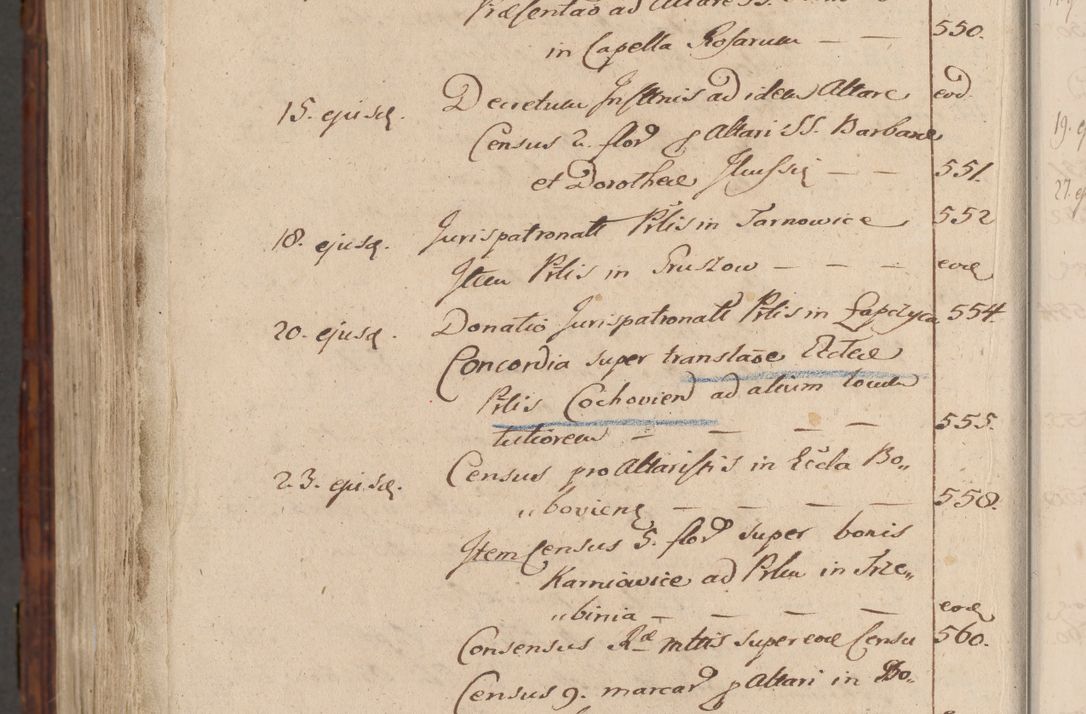 Præsentao ad Altare SS.
in Capella Rosarum — — 550.
15. ejusq. Decretum Insttnis ad idem Altare eod.
Census 2. flor. p Altari SS. Barbaræ
et Dorotheæ Ilkussiẽ — — 551.
18. ejusq. Jurispatronatt Prlis in Tarnowice 552
Item Prlis in Gruszow — — — eod
20. ejusq. Donatio Jurispatronatt Prlis in Łapczyca 554.
Concordia super translaõe Eccleæ
Prlis Cochovien ad alium locum
tutiorem — — — — 555.
23. ejusq. Census pro Altaristis in Eccla Bo„
„bovienẽ — — — — 558.
Item Census 5. flor. super bonis
Karniowice ad Prlem in Trze„
„binia — — — — eod
Consensus Ræ mttis super eod Censu 560.
Census 9. marcar. p Altari in Bo„